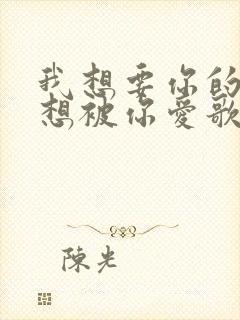 我想要你的
想被你愛歌
陳光